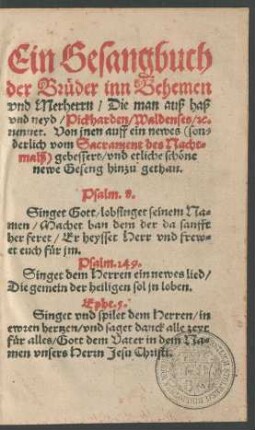 Ein Gesangbuch
der Brüder inn Behemen
vnd Merherrn / Die man auß haß
vnd neyd / Pickharden / Waldenses / ꝛc.
nennet. Von jnen auff ein newes (son⸗
derlich vom Sacrament des Nacht⸗
mals) gebessert / vnd etliche schöne
newe Geseng hinzu gethan.
Psalm. 8.
Singet Gott / lobsinget seinem Na⸗
men / Machet ban dem der da sanfft
her feret / Er heysset Herr vnd frew⸗
et euch für jm.
Psalm. 149.
Singet dem Herren ein newes lied /
Die gemein der heiligen sol jn loben.
Ephe. 5.
Singet vnd spilet dem Herren / in
ewren hertzen / vnd saget danck alle zeyt
für alles / Gott dem Vater in dem Na⸗
men vnsers Herrn Jesu Christi.